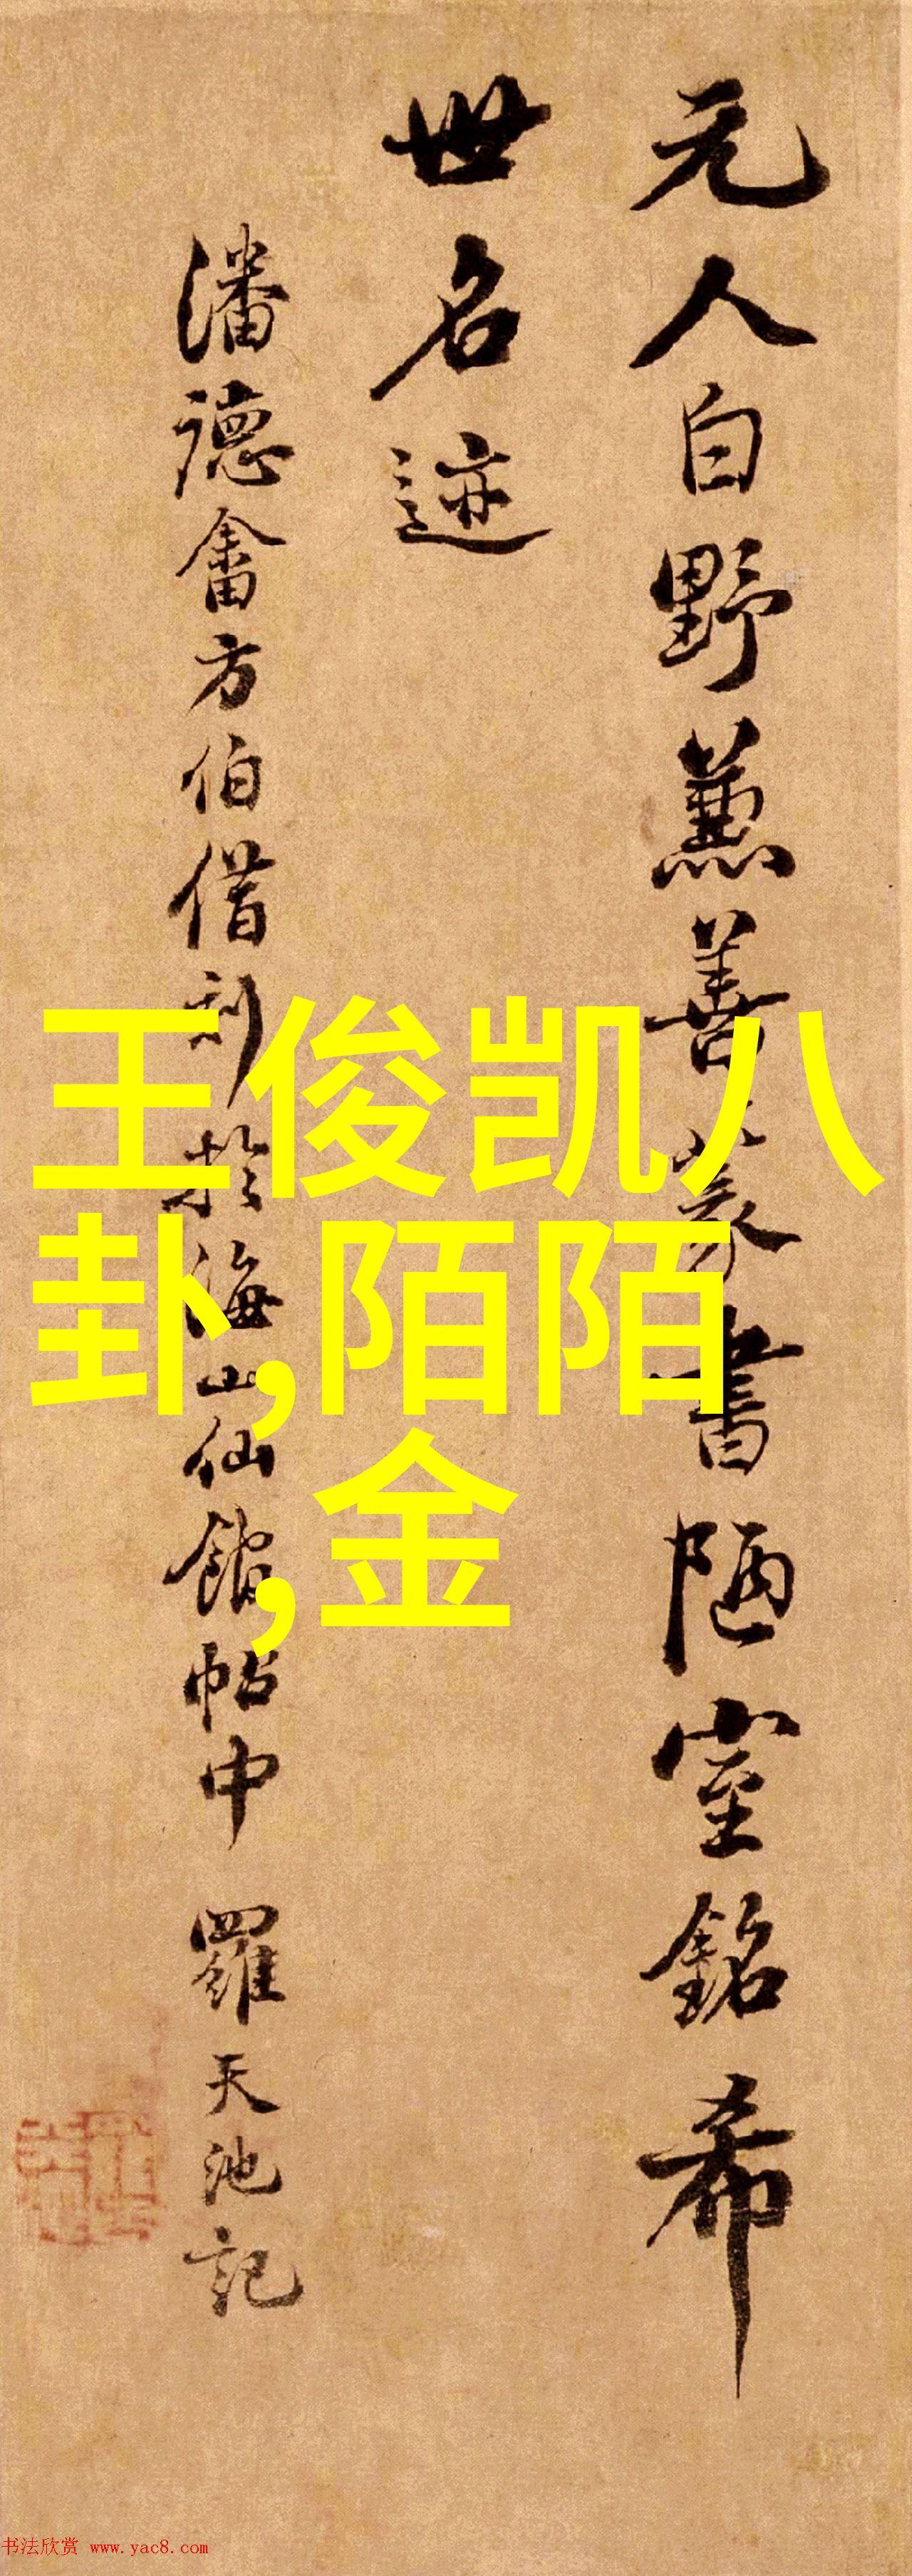 元人白野兼善篆書陋室銘希
世名迹
潘德畬方伯借刻於海山仙館帖中 羅天池記
王俊凯八
卦,陌陌
,金
书法欣赏 www.yac8.com